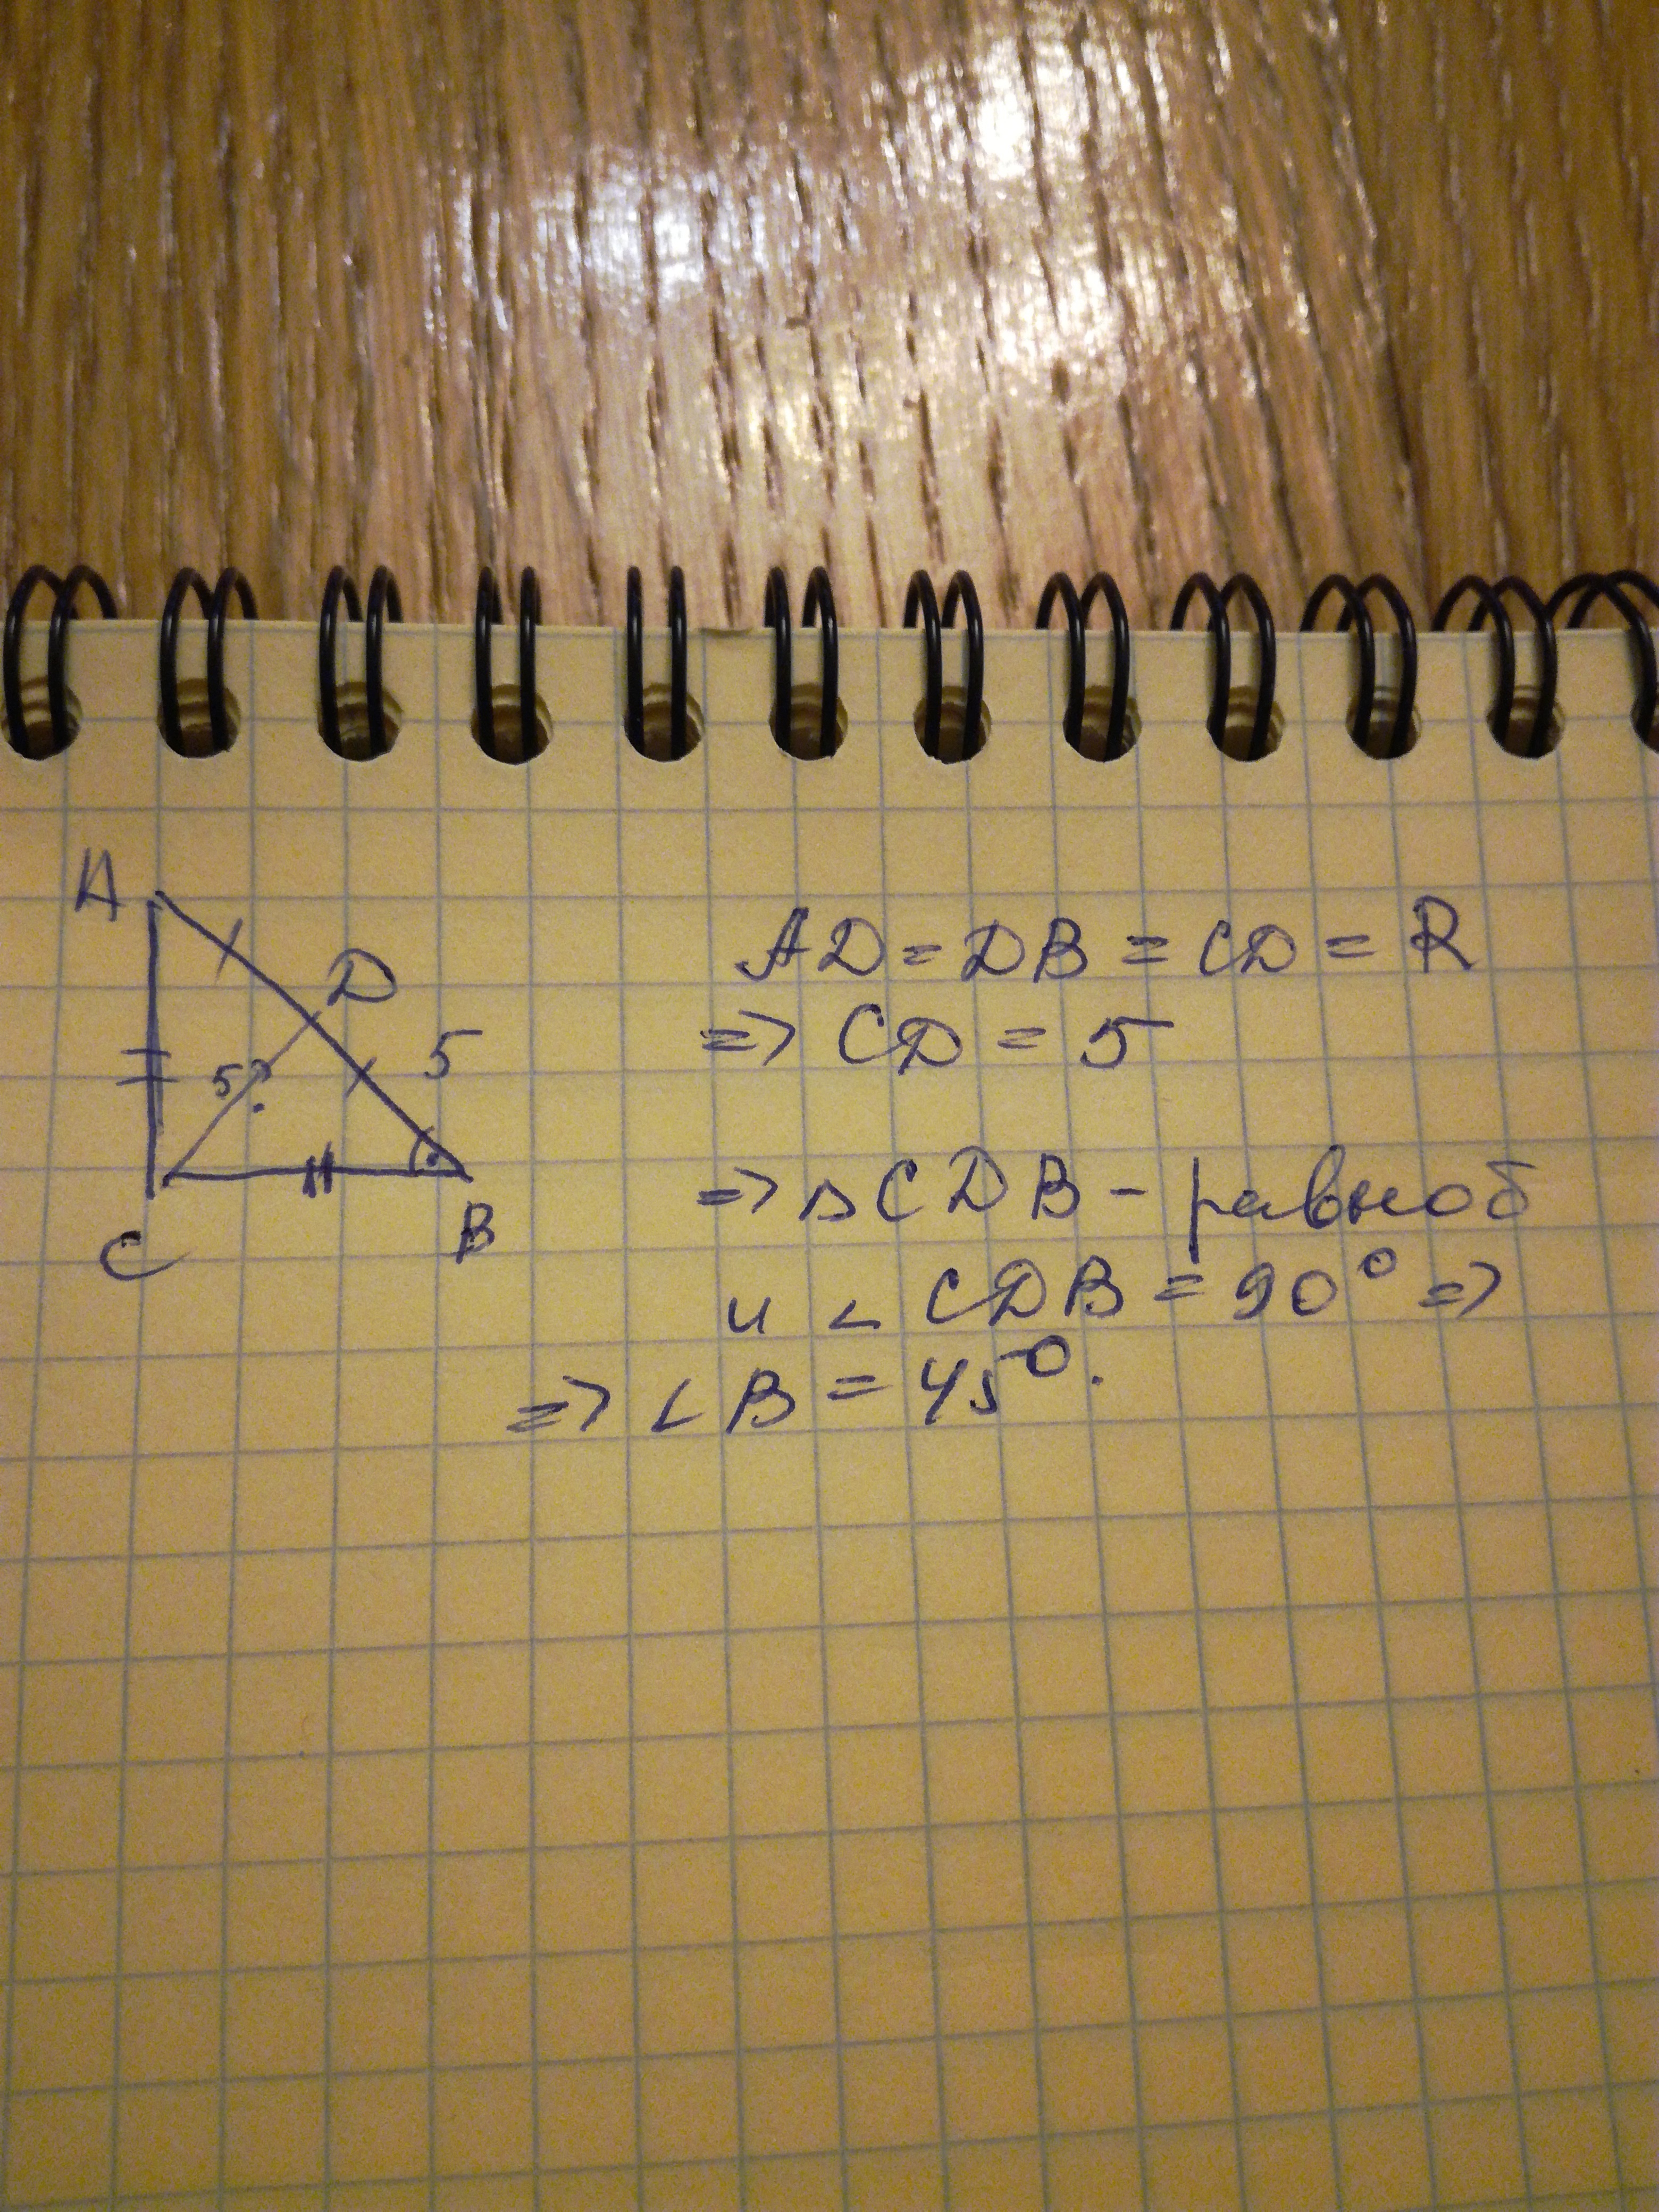 A
D
5
5?
C
B
AD = DB = CD = R
=> CD = 5
=> △CDB - равноб
и ∠CDB = 90° =>
=> ∠B = 45°.